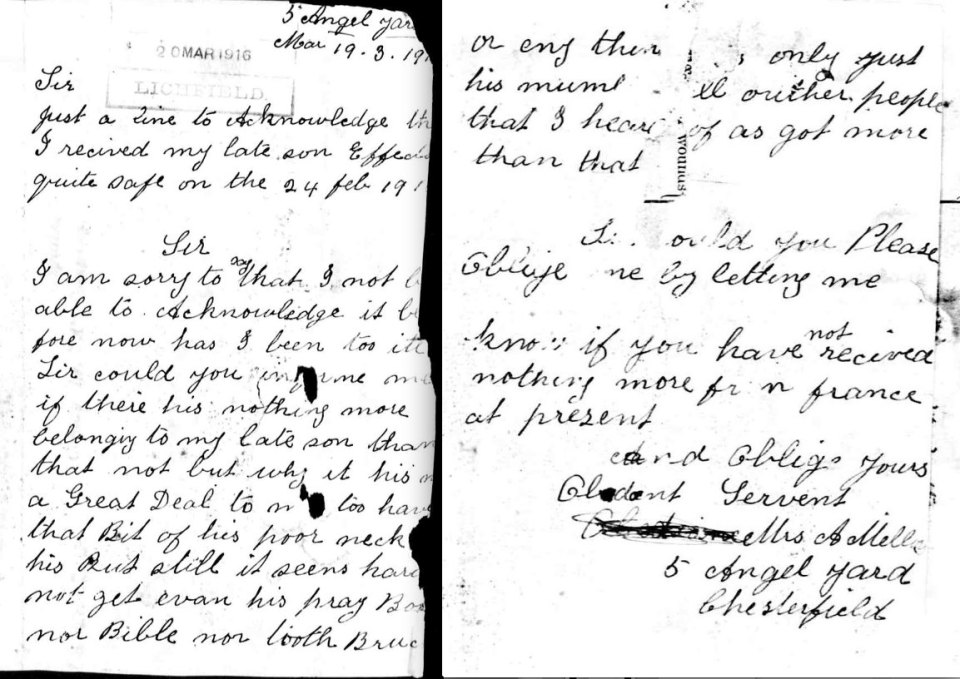 5 Angel Yar
Mar 19.3.191
20 MAR 1916
LICHFIELD
Sir
Just a Line to Acknowledge th
I recived my late son Effec
quite safe on the 24 feb 191
Sir
I am sorry to say that I not b
able to Acknowledge it be
fore now has I been too
Sir could you me
if there his nothing more
belongig to my late son than
that not but why it his
a Great Deal to too hav
that Bit of his poor neck
his But still it seens hard
not get evan his pray Bo
nor Bible nor tooth Bruc
or eny only just
his oucher people
that I hear of as got more
than that
wounds
ould you Please
Oblige me by letting me
know if you have not recived
nothing more from france
at present
And Oblige yours
Obedent Servent
Mrs A Mell
5 Angel Yard
Chesterfield